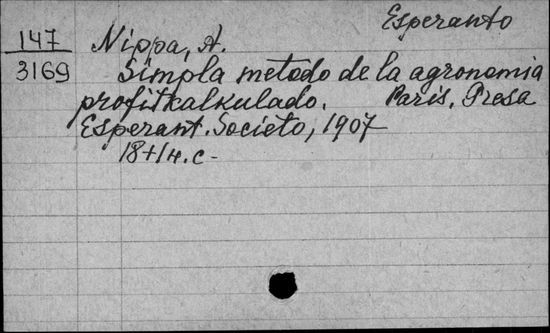 Esperanto
147
3169
Nippa, A.
Simpla metodo de la agronomia
profitkalkulado. Paris, Presa
Esperant. Societo, 1907
18+1 н. с-